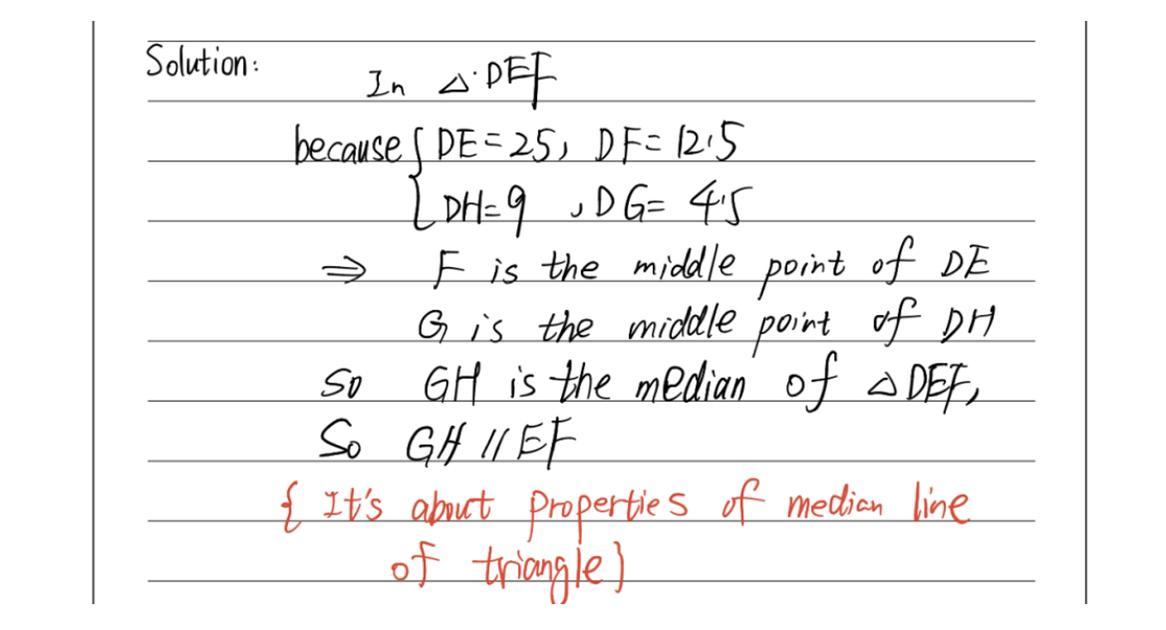 Solution:
In △DEF
because { DE=25, DF=12.5
DH=9, DG=4.5
⇒ F is the middle point of DE
G is the middle point of DH
So GH is the median of △DEF,
So GH // EF
{ It's about properties of median line
of triangle}